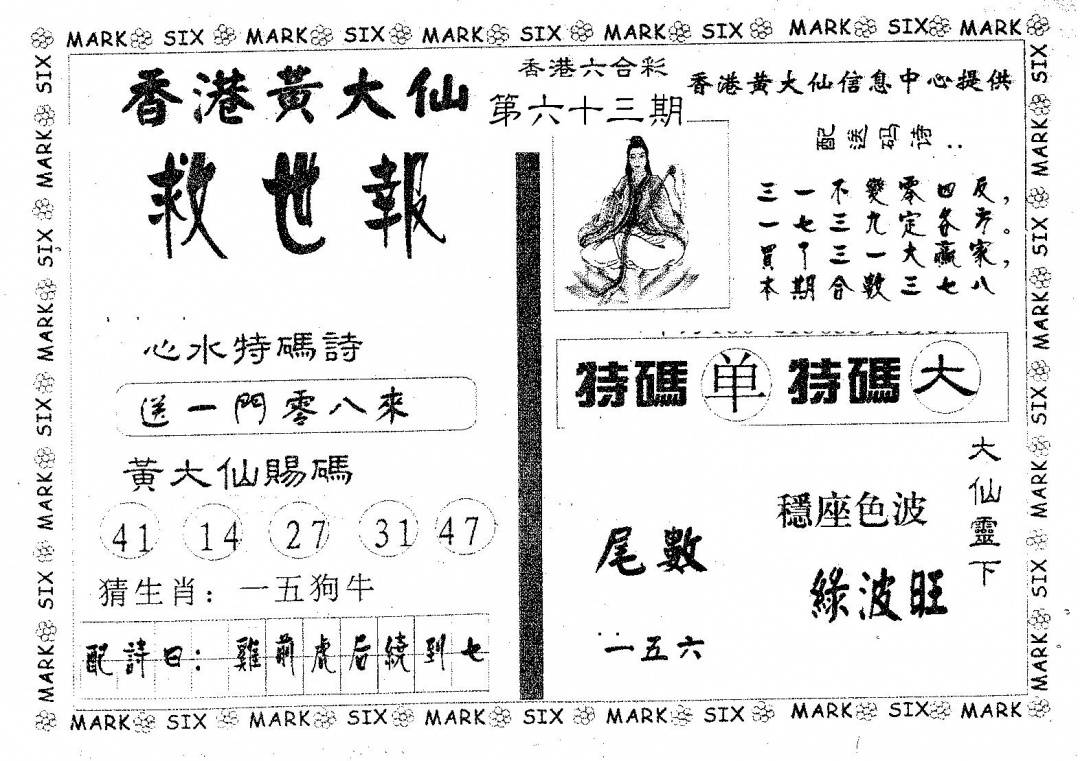 MARK SIX MARK SIX MARK SIX MARK SIX MARK SIX MARK
香港黃大仙
香港六合彩
第六十三期
香港黃大仙信息中心提供
救世報
配送码诗：
三一不變零四反，
一七三九定各方。
買了三一大贏家，
本期合數三七八
心水特碼詩
送一門零八來
特碼 单 特碼 大
黃大仙賜碼
41 14 27 31 47
猜生肖：一五狗牛
配詩曰：雞前虎后繞到七
尾數
一五六
穩座色波
綠波旺
大仙靈下
MARK SIX MARK SIX MARK SIX MARK SIX MARK SIX MARK
SIX MARK SIX MARK SIX MARK SIX MARK
SIX MARK SIX MARK SIX MARK SIX MARK